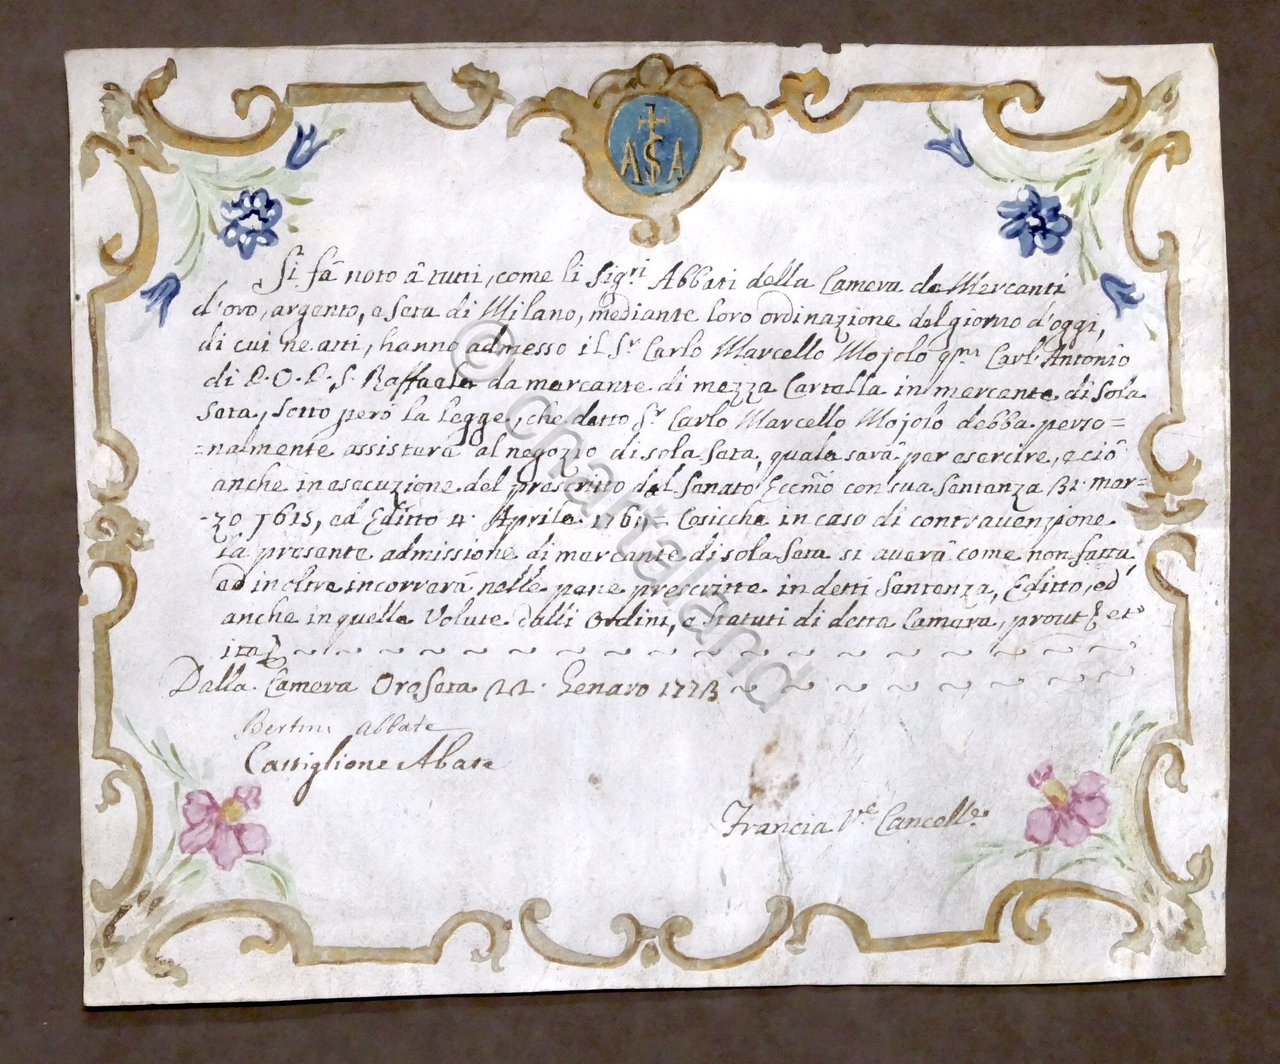 ASA
Si fà noto à tutti, come li Sig.ri Abbati della Camera de Mercanti
d'oro, argento, e Seta di Milano, mediante loro ordinazione del giorno d'oggi,
di cui ne atti, hanno admesso il Sr. Carlo Marcello Mojolo qm. Carl' Antonio
di P. O. P. S. Raffaele da mercante di mezza Cartella in mercante di Sola
Seta, sotto però la legge, che detto Sr. Carlo Marcello Mojolo debba perso=
=nalmente assisterà al negozio di sola Seta, quale sarà per esercire, e ciò
anche in esecuzione del prescritto dal Senato Eccmo con sua Santenza 31. mar=
=zo 1615, ed Editto 4. Aprile 1764. Cosicche in caso di contravenzione
la presente admissione di mercante di sola Seta si averà come non fatta,
ed inoltre incorrerà nelle pene prescritte in detti Sentenza, Editto, ed
anche in quelle Volute dalli Ordini, e Statuti di detta Camera, prout et
ita
Dalla Camera Oro Seta 22. Genaro 1773
Bertini Abbate
Castiglione Abate
Francia V.e Cancell.e
© chartaland